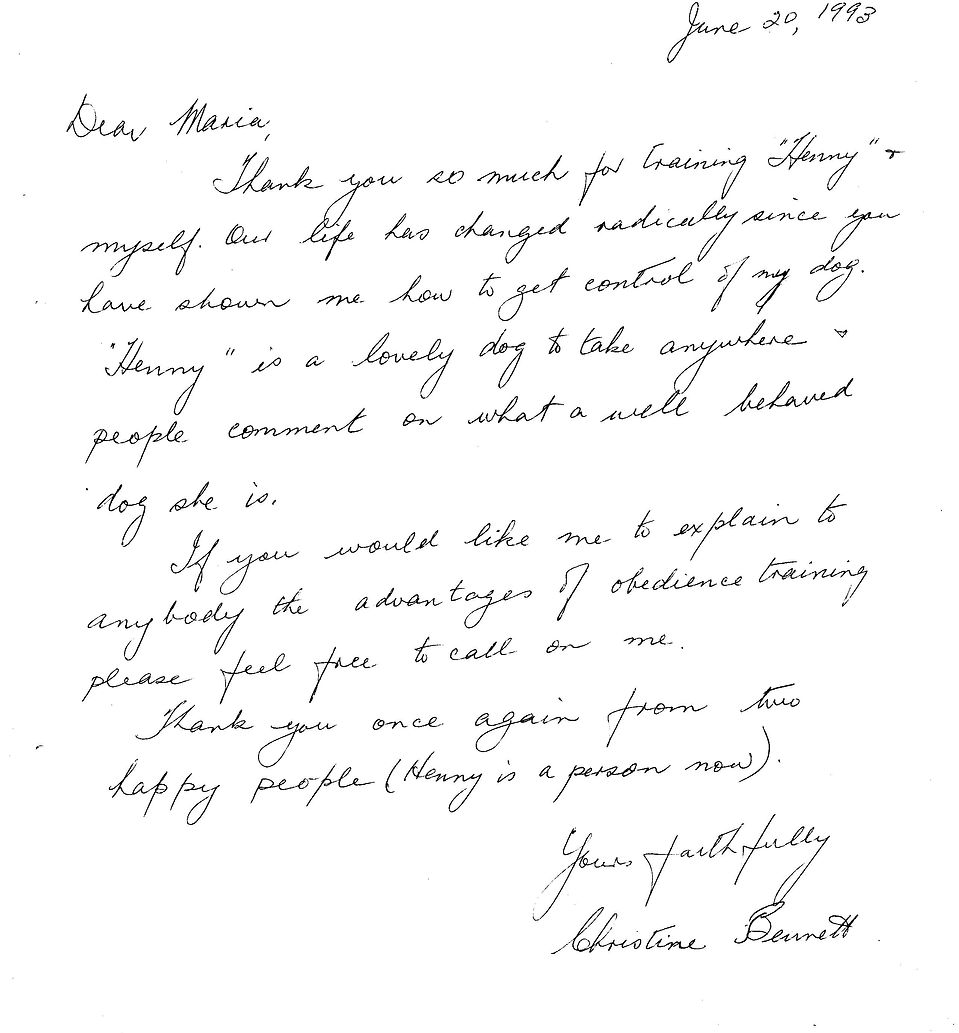 June 20, 1993
Dear Maria,
Thank you so much for training "Henny" &
myself. Our life has changed radically since you
have shown me how to get control of my dog.
"Henny" is a lovely dog to take anywhere &
people comment on what a well behaved
dog she is.
If you would like me to explain to
anybody the advantages of obedience training
please feel free to call on me.
Thank you once again from two
happy people (Henny is a person now).
Yours faithfully
Christine Bennett